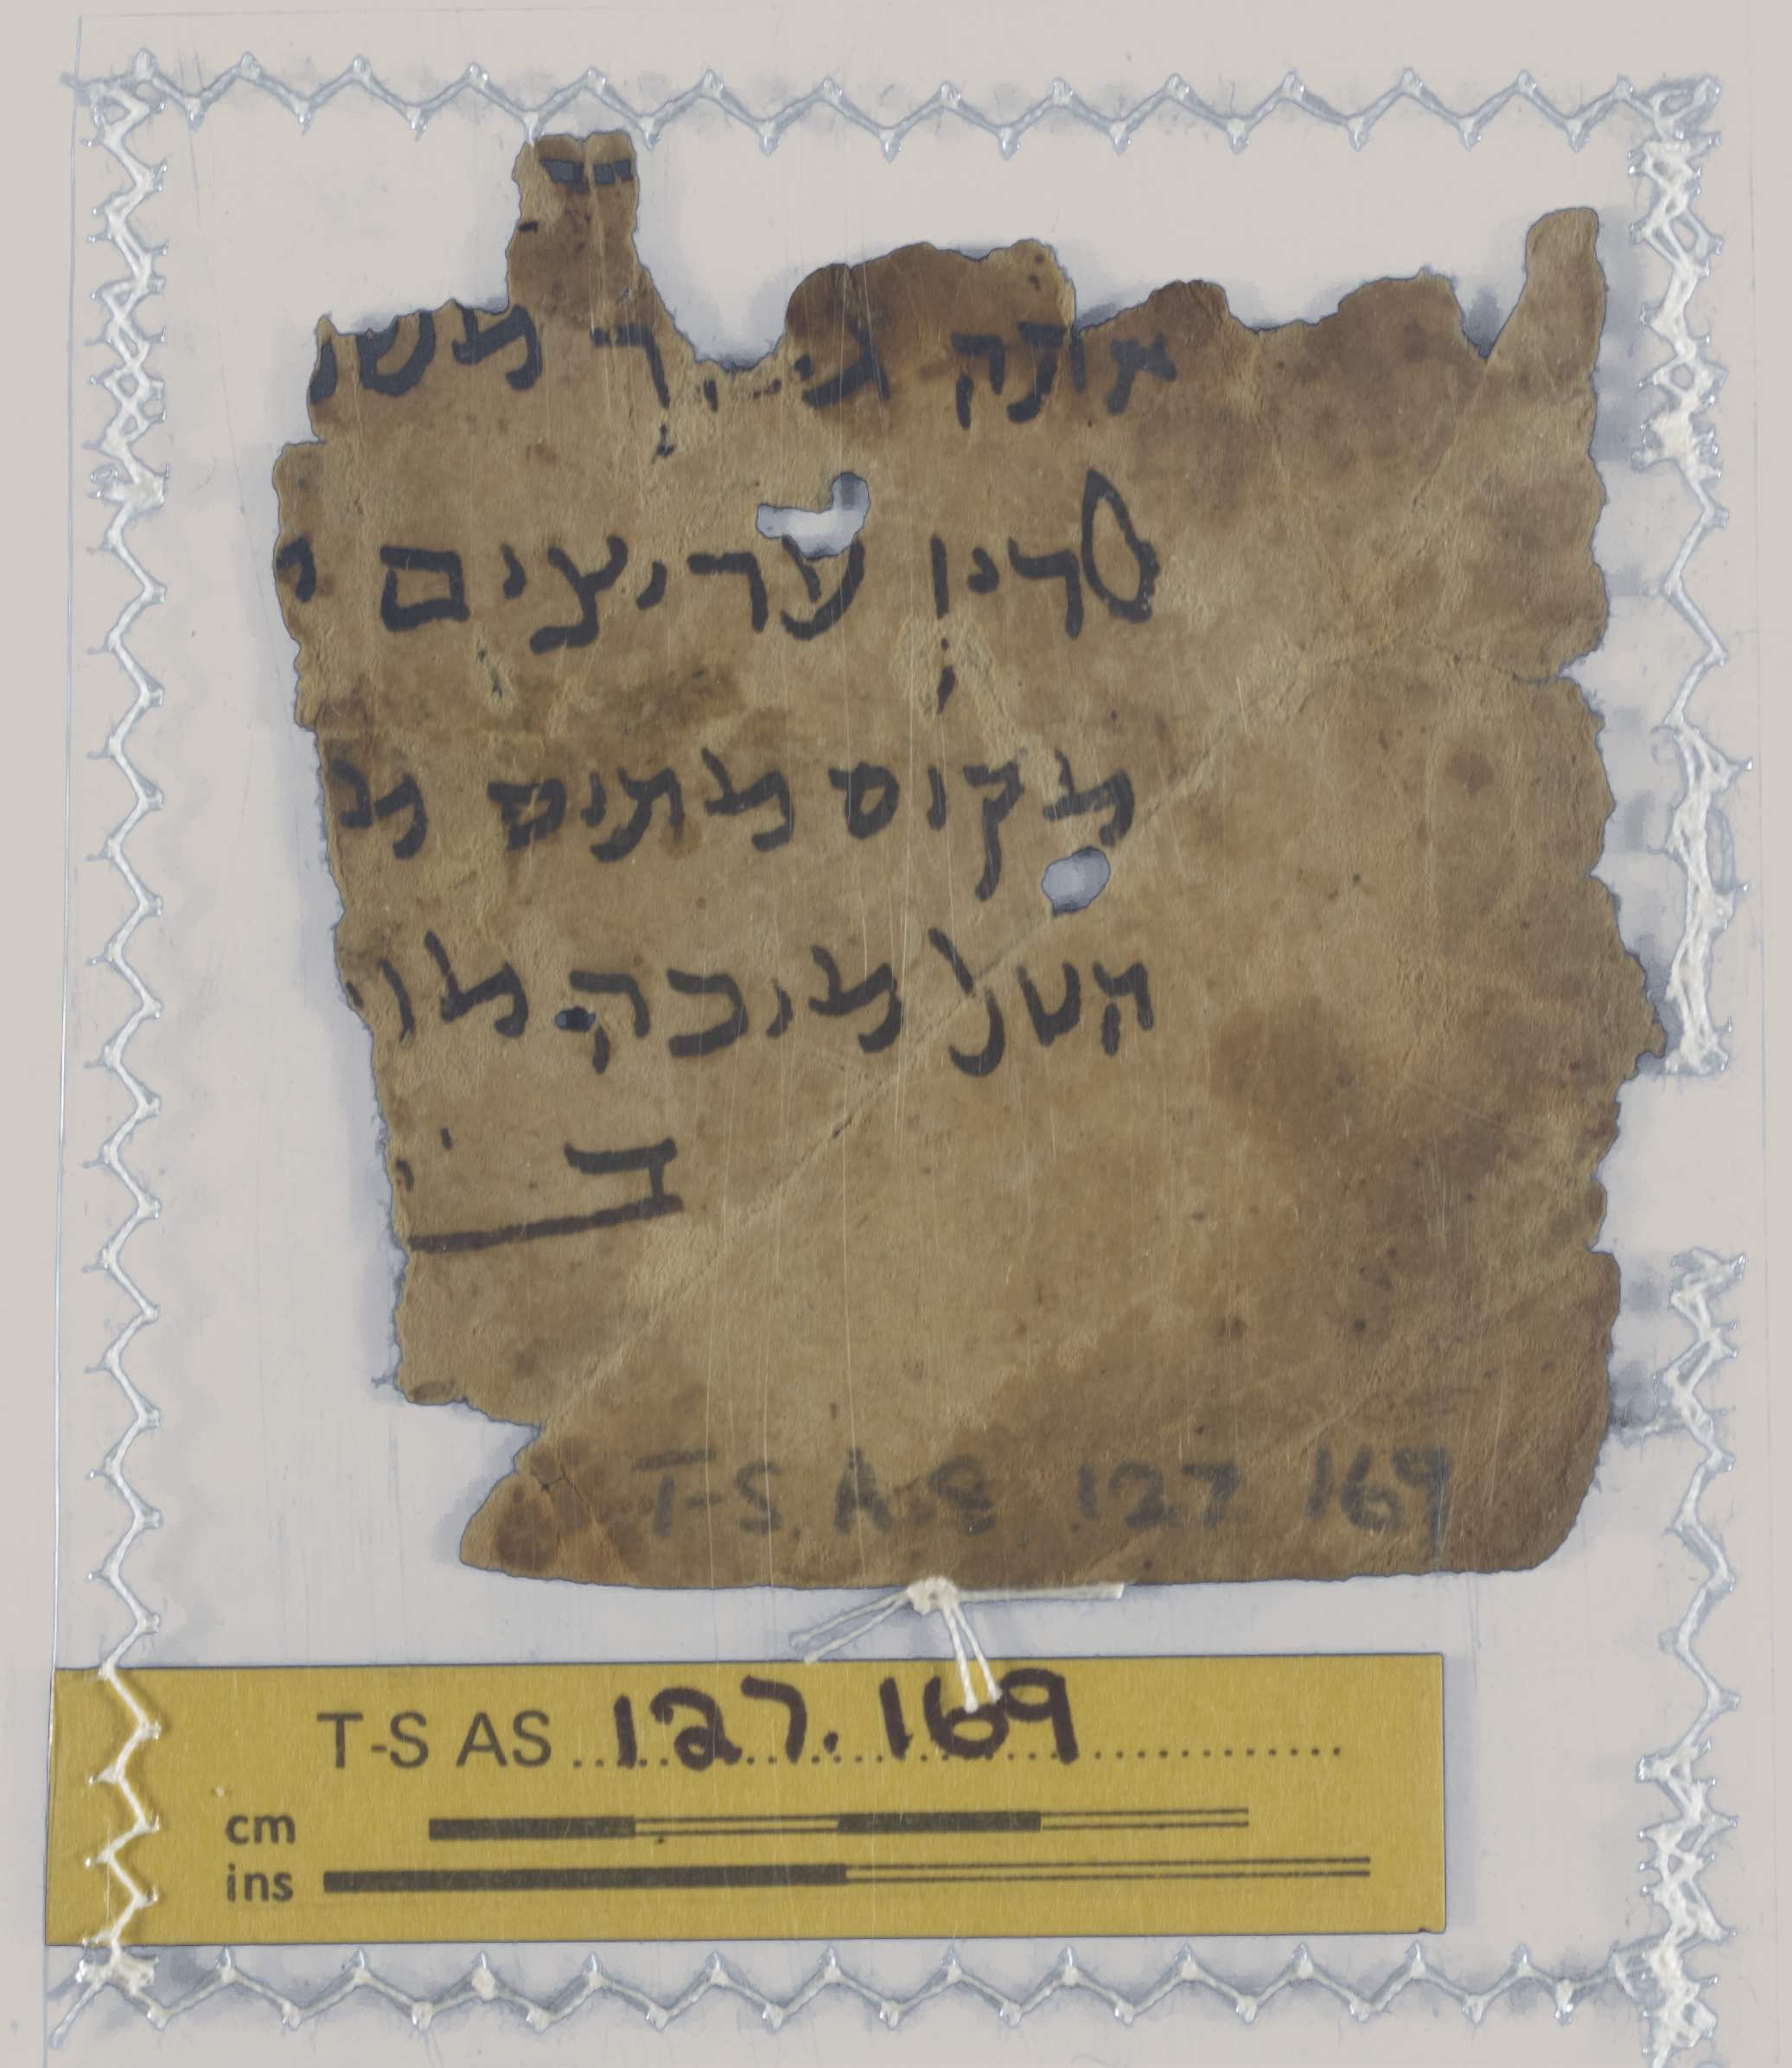 אותה
סרין עריצים י
מקום מתים מ
מיכה מו
ב
T-S A.S 127 169
T-S AS 127.169
cm
ins